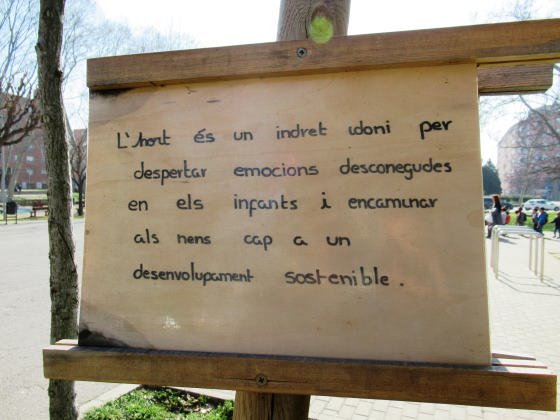 L'hort és un indret idoni per
despertar emocions desconegudes
en els infants i encaminar
als nens cap a un
desenvolupament sostenible.